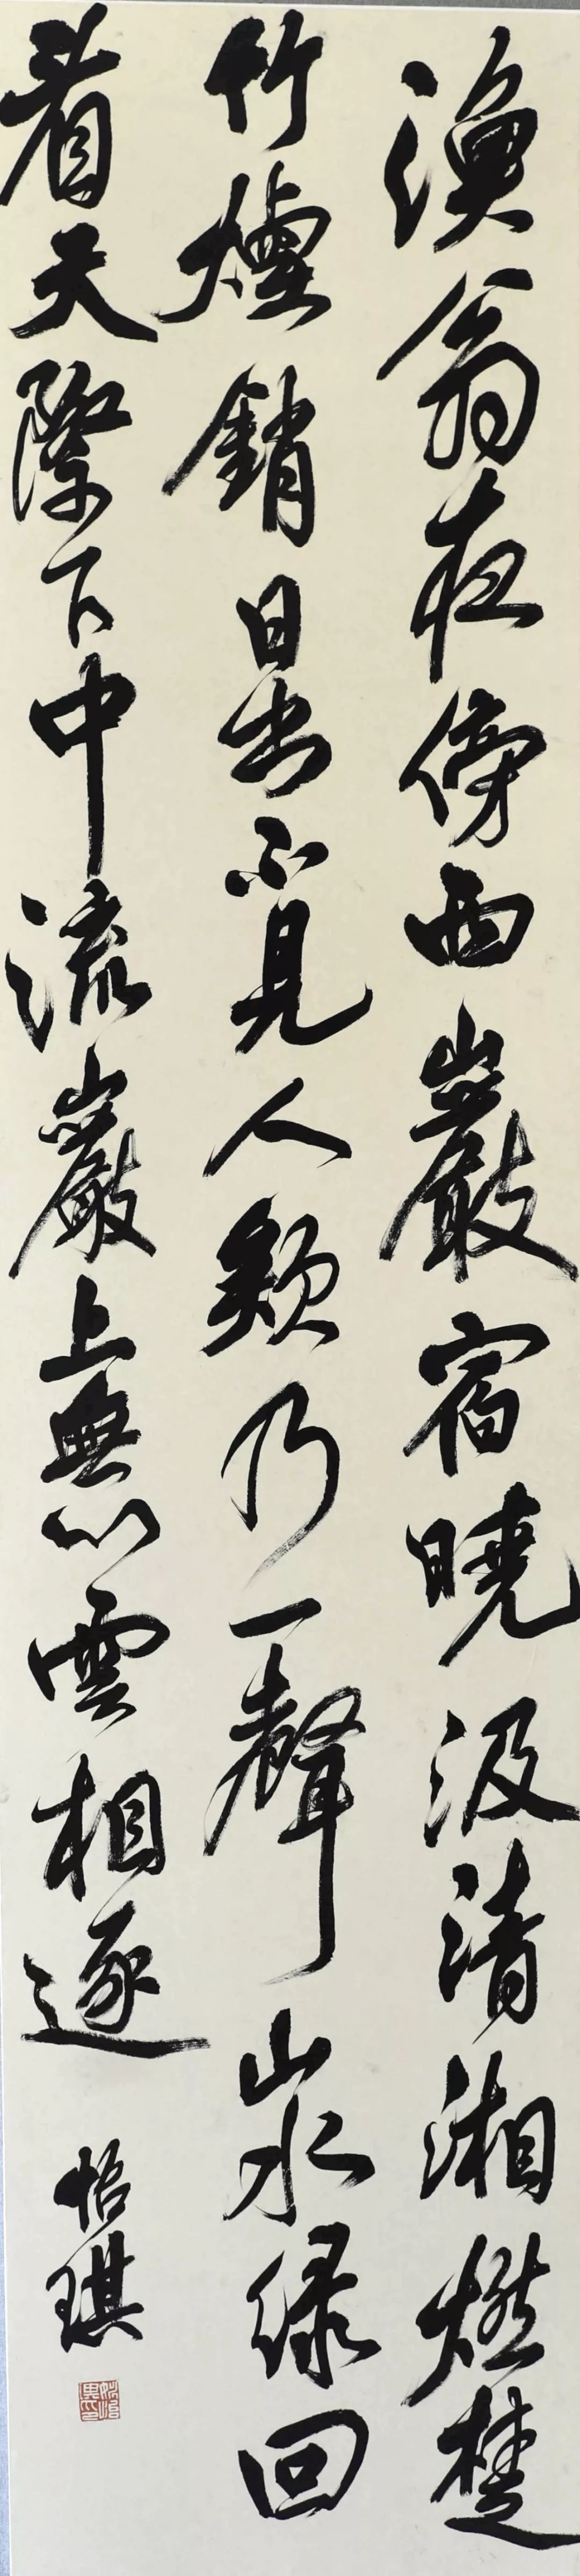 漁翁夜傍西巖宿曉汲清湘燃楚
竹煙銷日出不見人欸乃一聲山水綠回
看天際下中流巖上無心雲相逐
怡琪